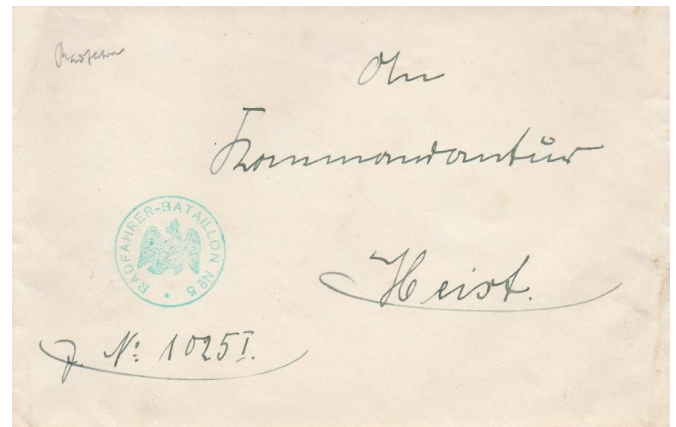 Radfahrer
An
Kommandantur
RADFAHRER-BATAILLON No 5
Heist.
J. No: 1025 I.